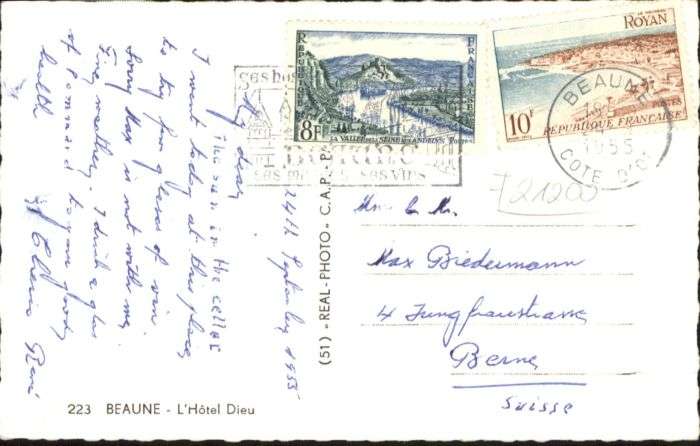 24th September 1955
My dear,
The sun in the cellar
I went today at this place
to try few glasses of vin.
Sorry Max is not with me.
Fine weather. I drink a glas
of Pommard to your good
health
René
223 BEAUNE - L'Hôtel Dieu
(51) - REAL-PHOTO - C.A.P. -
RÉPUBLIQUE
FRANÇAISE
8F
LA VALLÉE DE LA SEINE AUX ANDELYS
POSTES
ROYAN
10F
POSTES
RÉPUBLIQUE FRANÇAISE
BEAUNE
1955
COTE D'OR
BEAUNE
SES VINS
21200
Max Biedermann
4 Jungfraustrasse
Berne
Suisse